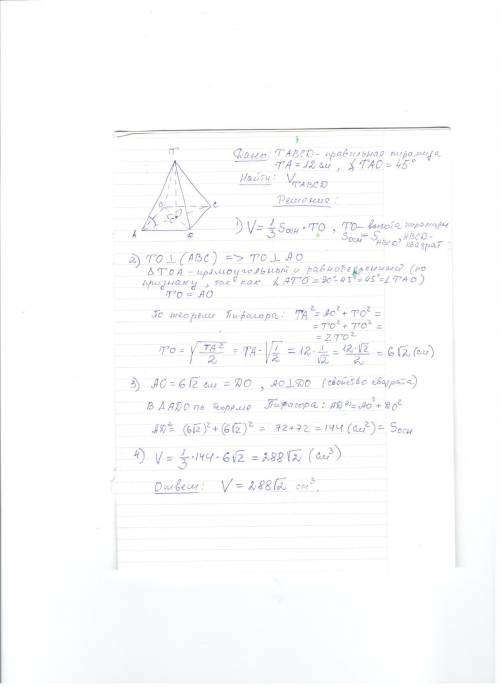 T
Дано: TABCD - правильная пирамида
TA = 12 см, ∠TAO = 45°
Найти: V_TABCD
Решение:
A
C
D
O
1) V = 1/3 Sосн · TO, TO - высота пирамиды
Sосн = S_ABCD, ABCD - квадрат.
2) TO ⊥ (ABC) => TO ⊥ AO
ΔTOA - прямоугольный и равнобедренный (по
признаку, так как ∠ATO = 90° - 45° = 45° = ∠TAO)
TO = AO
По теореме Пифагора: TA² = AO² + TO² =
= TO² + TO² =
= 2TO²
TO = √(TA²/2) = TA · √(1/2) = 12 · 1/√2 = 12·√2/2 = 6√2 (см)
3) AO = 6√2 см = DO, AO ⊥ DO (свойство квадрата)
В ΔADO по теореме Пифагора: AD² = AO² + DO²
AD² = (6√2)² + (6√2)² = 72 + 72 = 144 (см²) = Sосн
4) V = 1/3 · 144 · 6√2 = 288√2 (см³)
Ответ: V = 288√2 см³.